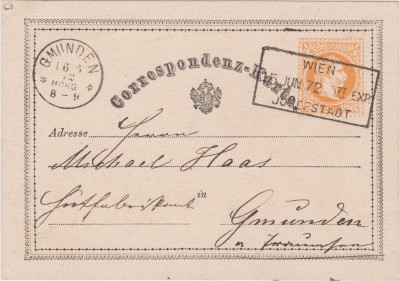 GMUNDEN
16 6
72
MORG.
8-9
Correspondenz-Karte.
WIEN
15 JUN. 72 VI EXP
JOSEFSTADT
Adresse Herrn
Michael Haas
in
Gmunden
a Traunsee